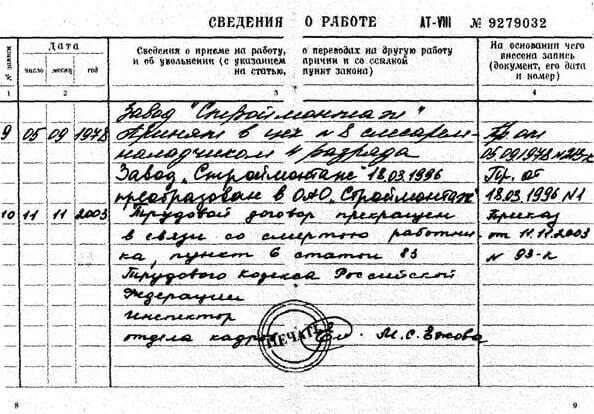 СВЕДЕНИЯ О РАБОТЕ АТ-VIII № 9279032
№ записи Дата Сведения о приеме на работу, о переводах на другую работу На основании чего
и об увольнении (с указанием причин и со ссылкой внесена запись
число месяц год на статью, пункт закона) (документ, его дата
и номер)
1 2 3 4
Завод "Строймонтаж"
9 05 09 1978 Принят в цех №8 слесарем- Пр. от
наладчиком 4 разряда 05.09.1978 №213-к
Завод „Строймонтаж" 18.03.1996 Пр. от
преобразован в ОАО „Строймонтаж" 18.03.1996 №1
10 11 11 2003 Трудовой договор прекращен Приказ
в связи со смертью работни- от 11.11.2003
ка, пункт 6 статьи 83 № 93-к
Трудового Кодекса Российской
Федерации
инспектор
отдела кадров М.С. Ежова
ПЕЧАТЬ
8 9